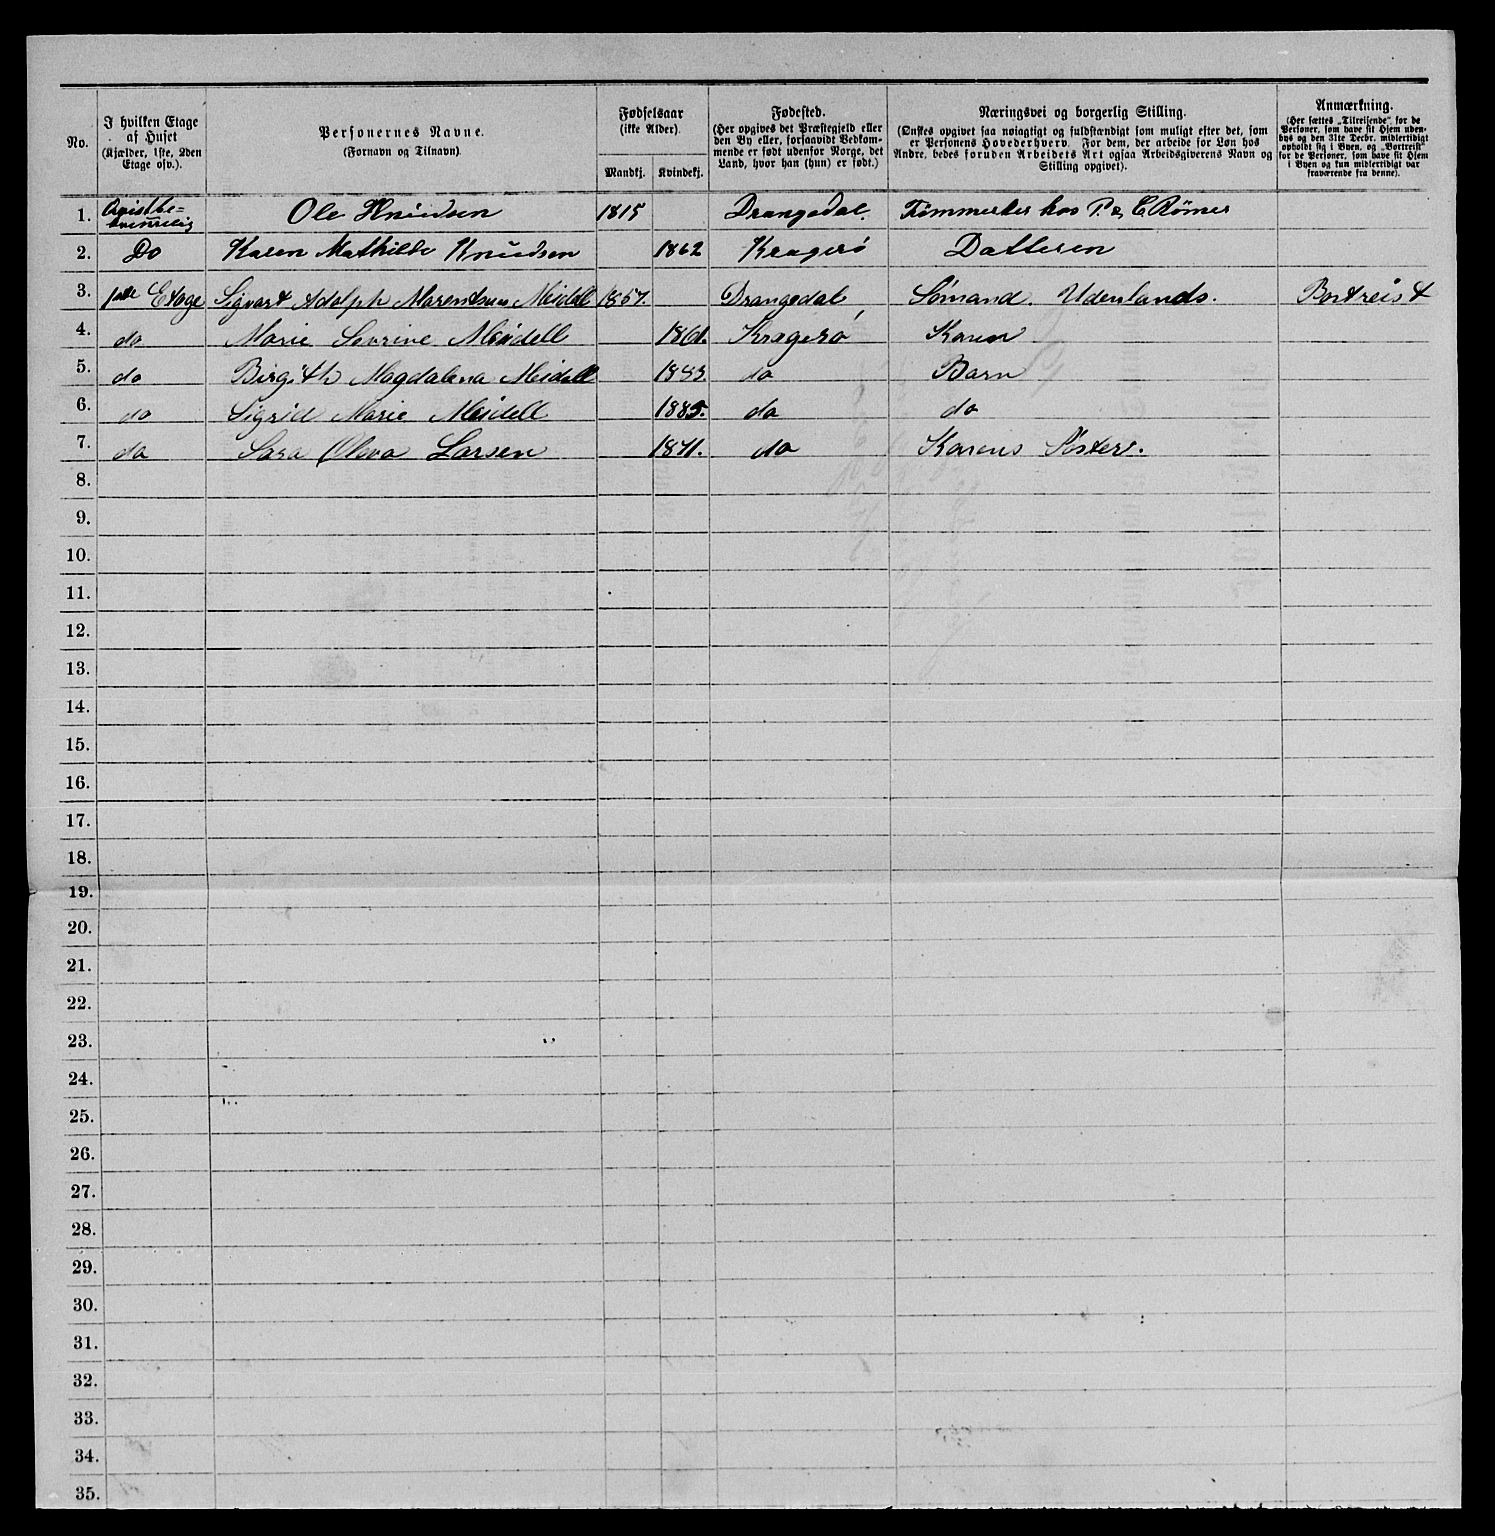 No.
I hvilken Etage
af Huset
(Kjælder, 1ste, 2den
Etage osv.).
Personernes Navne.
(Fornavn og Tilnavn).
Fødselsaar
(ikke Alder).
Mandkj. Kvindekj.
Fødested.
(Her opgives det Præstegjeld eller
den By eller, forsaavidt Vedkom-
mende er født udenfor Norge, det
Land, hvor han (hun) er født.)
Næringsvei og borgerlig Stilling.
(Ønskes opgivet saa nøiagtigt og fuldstændigt som muligt efter det, som
er Personens Hovederhverv. For dem, der arbeide for Løn hos
Andre, bedes foruden Arbeidets Art ogsaa Arbeidsgiverens Navn og
Stilling opgivet).
Anmærkning.
(Her sættes „Tilreisende“ for de
Personer, som have sit Hjem uden-
bys og den 31te Decbr. midlertidigt
opholdt sig i Byen, og „Bortreist“
for de Personer, som have sit Hjem
i Byen og kun midlertidigt var
fraværende fra denne).
1. Ole Knudsen 1815 Drangedal. hos P. & C Römer
2. Do Karen Mathilde Knudsen 1862 Kragerø Datteren
3. 1ste Etage Sigvart Adolph Marentsen Meidell 1857. Drangedal Sømand. Udenlands. Bortreist
4. do Marie Sevrine Meidell 1861. Kragerø Konen
5. do Birgith Magdalena Meidell 1883. do Barn
6. do Sigrid Marie Meidell 1885. do do
7. do Sara Oleva Larsen 1871. do Konens Søster.
8.
9.
10.
11.
12.
13.
14.
15.
16.
17.
18.
19.
20.
21.
22.
23.
24.
25.
26.
27.
28.
29.
30.
31.
32.
33.
34.
35.